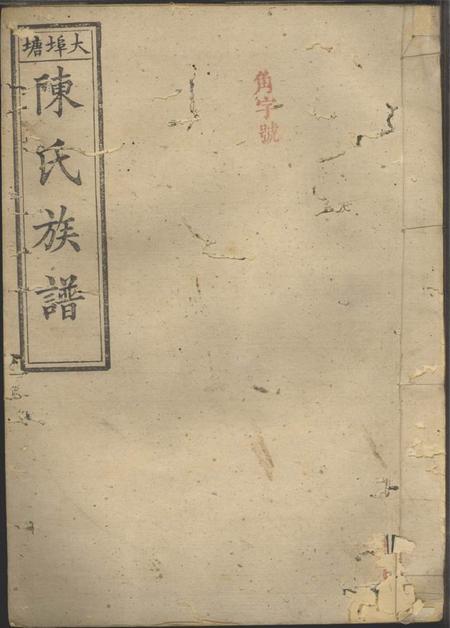 大埠塘
陳氏族譜
角字號